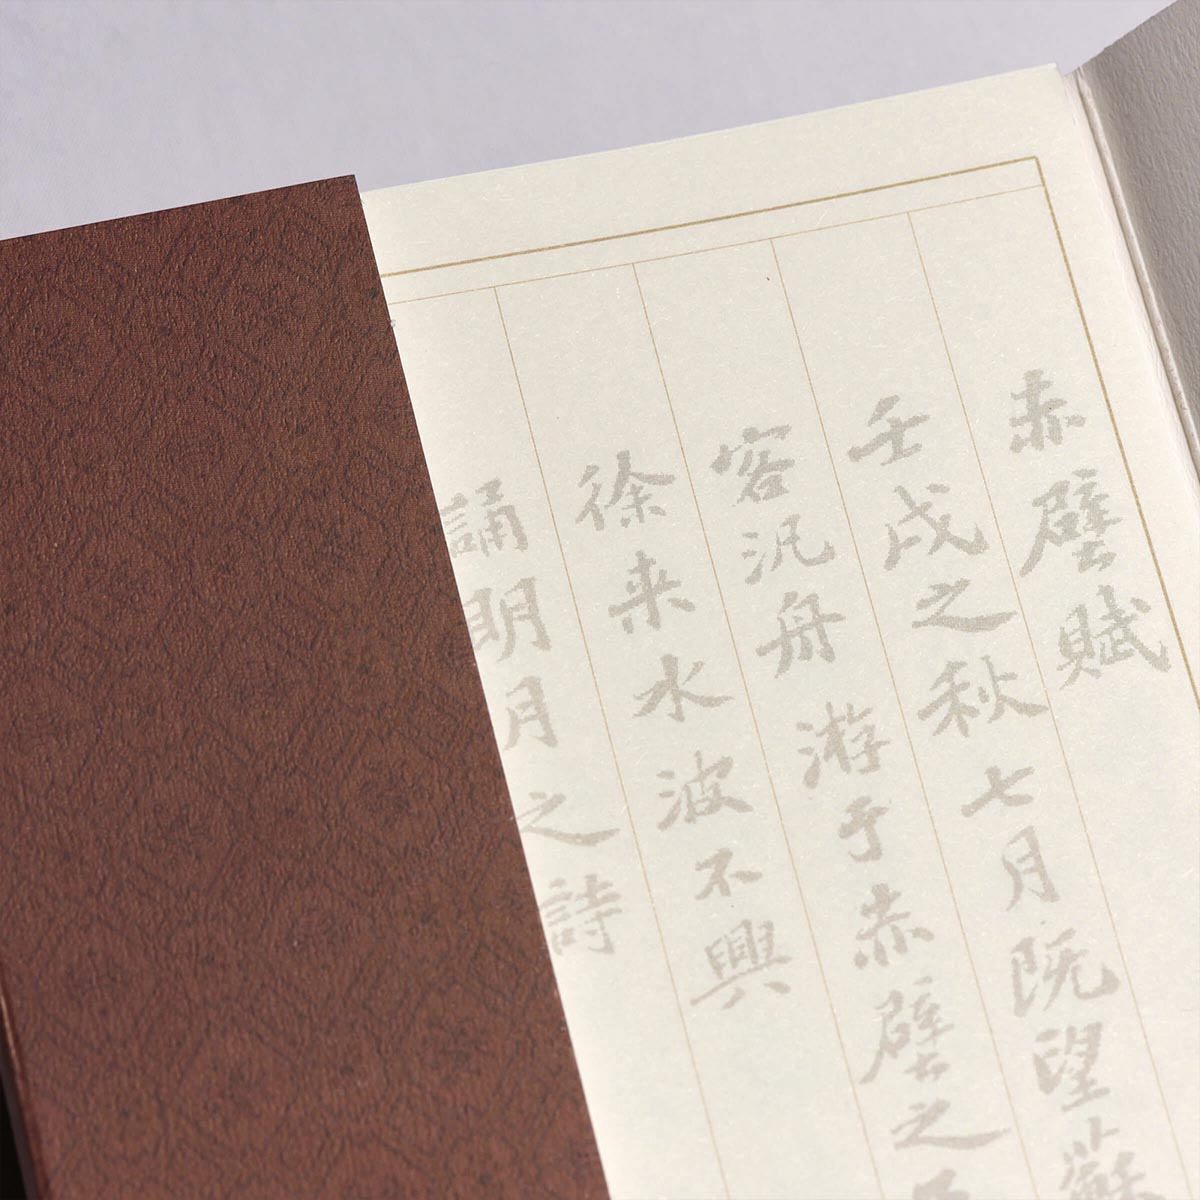 赤壁賦
壬戌之秋七月既望蘇
客汎舟游于赤壁之
徐来水波不興
誦明月之詩